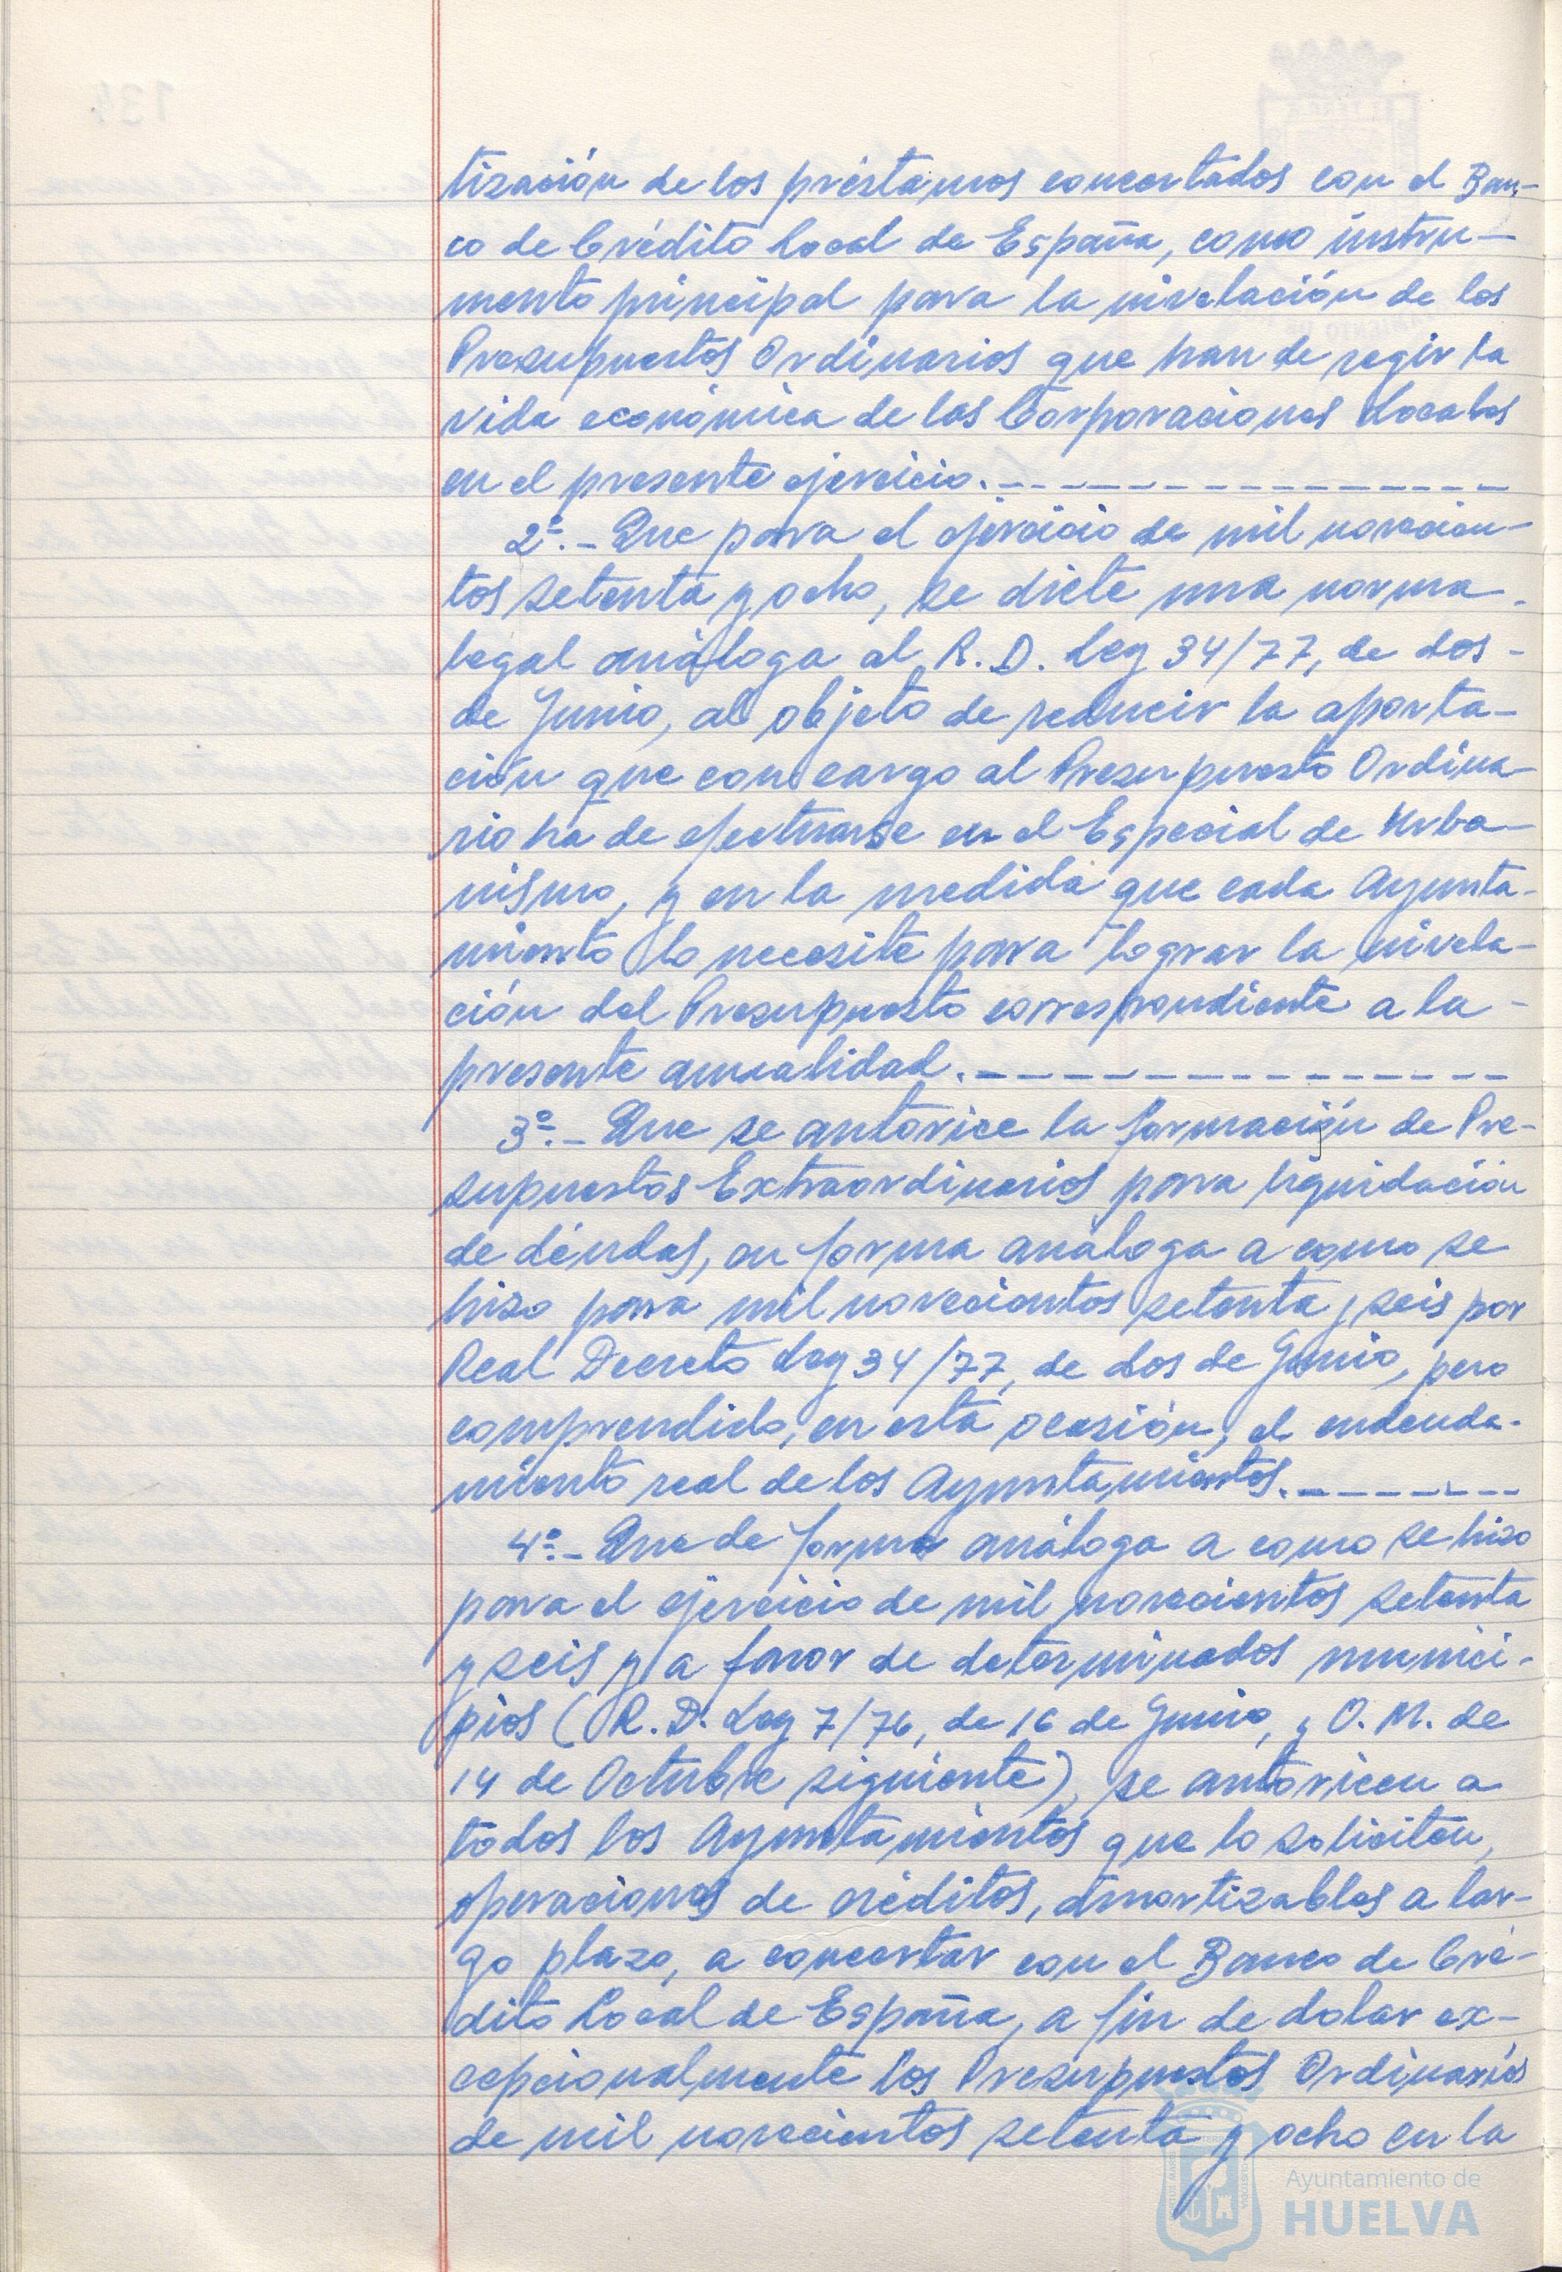 tización de los préstamos concertados con el Ban-
co de Crédito Local de España, como instru-
mento principal para la nivelación de los
Presupuestos Ordinarios que han de regir la
vida económica de las Corporaciones Locales
en el presente ejercicio.-----------------
2º.- Que para el ejercicio de mil novecien-
tos setenta y ocho, se dicte una norma
legal análoga al R. D. Ley 34/77, de dos-
de Junio, al objeto de reducir la aporta-
ción que con cargo al Presupuesto Ordina-
rio ha de efectuarse en el Especial de Urba-
nismo, y en la medida que cada Ayunta-
miento lo necesite para lograr la nivela-
ción del Presupuesto correspondiente a la -
presente anualidad.----------------
3º.- Que se autorice la formación de Pre-
supuestos Extraordinarios para liquidación
de déudas, en forma análoga a como se
hizo para mil novecientos setenta y seis por
Real Decreto Ley 34/77, de dos de Junio, pero
comprendido, en esta ocasión, el endeuda-
miento real de los Ayuntamientos.--------
4º.- Que de forma análoga a como se hizo
para el ejercicio de mil novecientos setenta
y seis y a favor de determinados munici-
pios (R. D. Ley 7/76, de 16 de Junio, y O. M. de
14 de Octubre siguiente), se autoricen a
todos los Ayuntamientos que lo soliciten,
operaciones de créditos, amortizables a lar-
go plazo, a concertar con el Banco de Cré-
dito Local de España, a fin de dotar ex-
cepcionalmente los Presupuestos Ordinarios
de mil novecientos setenta y ocho en la
Ayuntamiento de
HUELVA